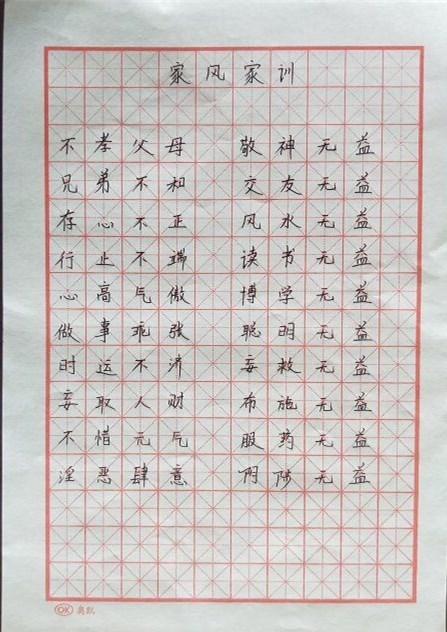 家风家训
不孝父母 敬神无益
兄弟不和 交友无益
存心不正 风水无益
行止不端 读书无益
心高气傲 博学无益
做事乖张 聪明无益
时运不济 妄救无益
妄取人财 布施无益
不惜元气 服药无益
淫恶肆意 阴陟无益
OK 奥凯